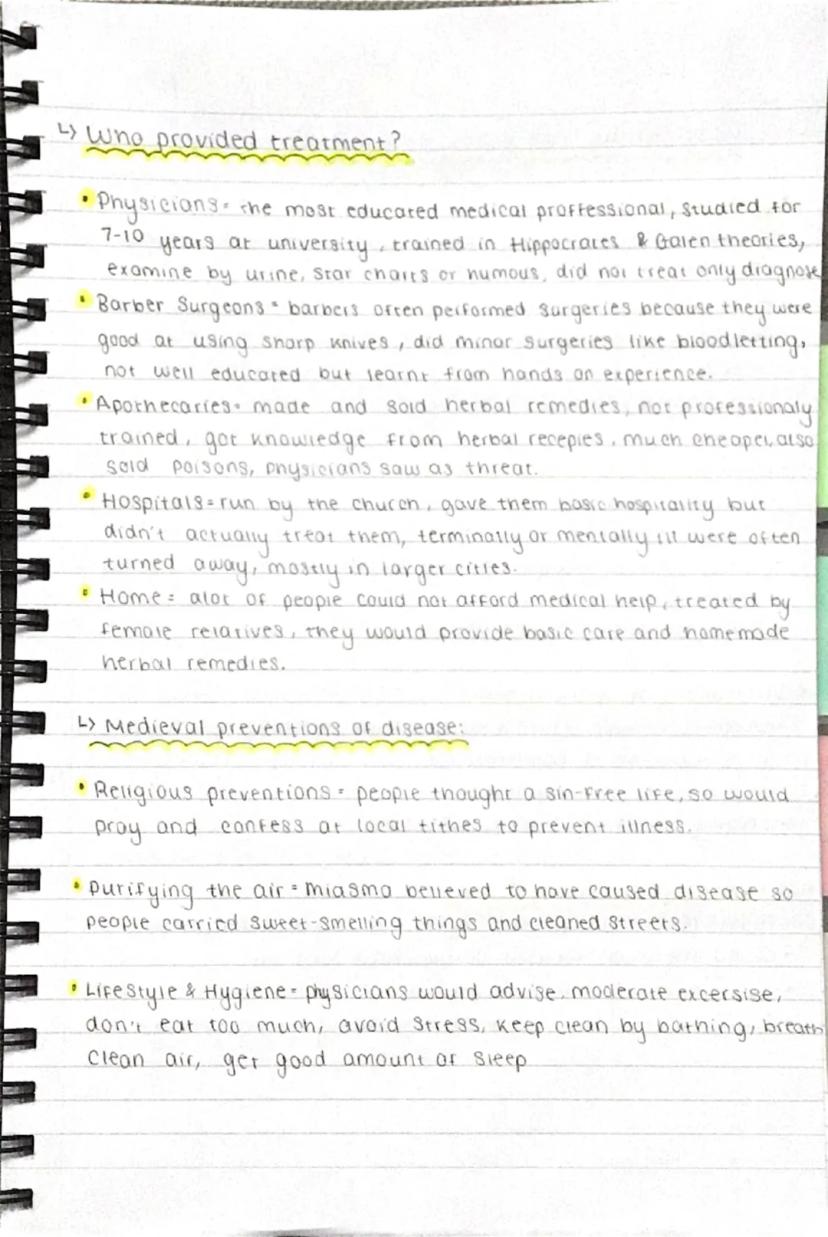 ↳ Who provided treatment?
• Physicians = the most educated medical proffessional, studied for
7-10 years at university, trained in Hippocrates & Galen theories,
examine by urine, star charts or humous, did not treat only diagnose
• Barber Surgeons = barbers often performed surgeries because they were
good at using sharp knives, did minor surgeries like bloodletting,
not well educated but learnt from hands on experience.
• Apothecaries = made and sold herbal remedies, not professionaly
trained, got knowledge from herbal recepies, much cheaper, also
sold poisons, physicians saw as threat.
• Hospitals = run by the church, gave them basic hospitality but
didn't actually treat them, terminally or mentally ill were often
turned away, mostly in larger cities.
• Home = alot of people could not afford medical help, treated by
female relatives, they would provide basic care and homemade
herbal remedies.
↳ Medieval preventions of disease:
• Religious preventions = people thought a sin-free life, so would
pray and confess at local tithes to prevent illness.
• Purifying the air = miasma believed to have caused disease so
people carried sweet-smelling things and cleaned streets.
• Lifestyle & Hygiene = physicians would advise, moderate excersise,
don't eat too much, avoid stress, keep clean by bathing, breath
clean air, get good amount of sleep